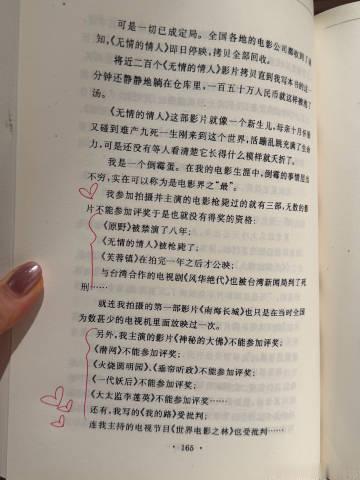 可是一切已成定局。全国各地的电影公司都收到了通
知,《无情的情人》即日停映,拷贝全部回收。
将近二百个《无情的情人》影片拷贝直到我写本书的这一
分钟还静静地躺在仓库里,一百五十万人民币就这样被泡了
汤。
《无情的情人》这部影片就像一个新生儿,母亲十月怀胎
又碰到难产九死一生刚来到这个世界,活蹦乱跳充满了生命
力,可是还没有等人看清楚它长得什么模样就夭折了。
我是一个倒霉蛋。在我的电影生涯中,倒霉的事情层出
不穷,实在可以称为是电影界之“最”。
我参加拍摄并主演的电影枪毙过的就有三部,无数的影
片不能参加评奖于是也就没有得奖的资格:
《原野》被禁演了八年;
《无情的情人》被枪毙了;
《芙蓉镇》在拍完一年之后才公映;
与台湾合作的电视剧《风华绝代》也被台湾新闻局判了死
刑……
就连我拍摄的第一部影片《南海长城》也只是在当时全国
为数甚少的电视机里面放映过一次。
另外,我主演的影片《神秘的大佛》不能参加评奖;
《潜网》不能参加评奖;
《火烧圆明园》、《垂帘听政》不能参加评奖;
《一代妖后》不能参加评奖;
《大太监李莲英》不能参加评奖……
还有,我写的《我的路》受批判;
连我主持的电视节目《世界电影之林》也受批判……
·165·